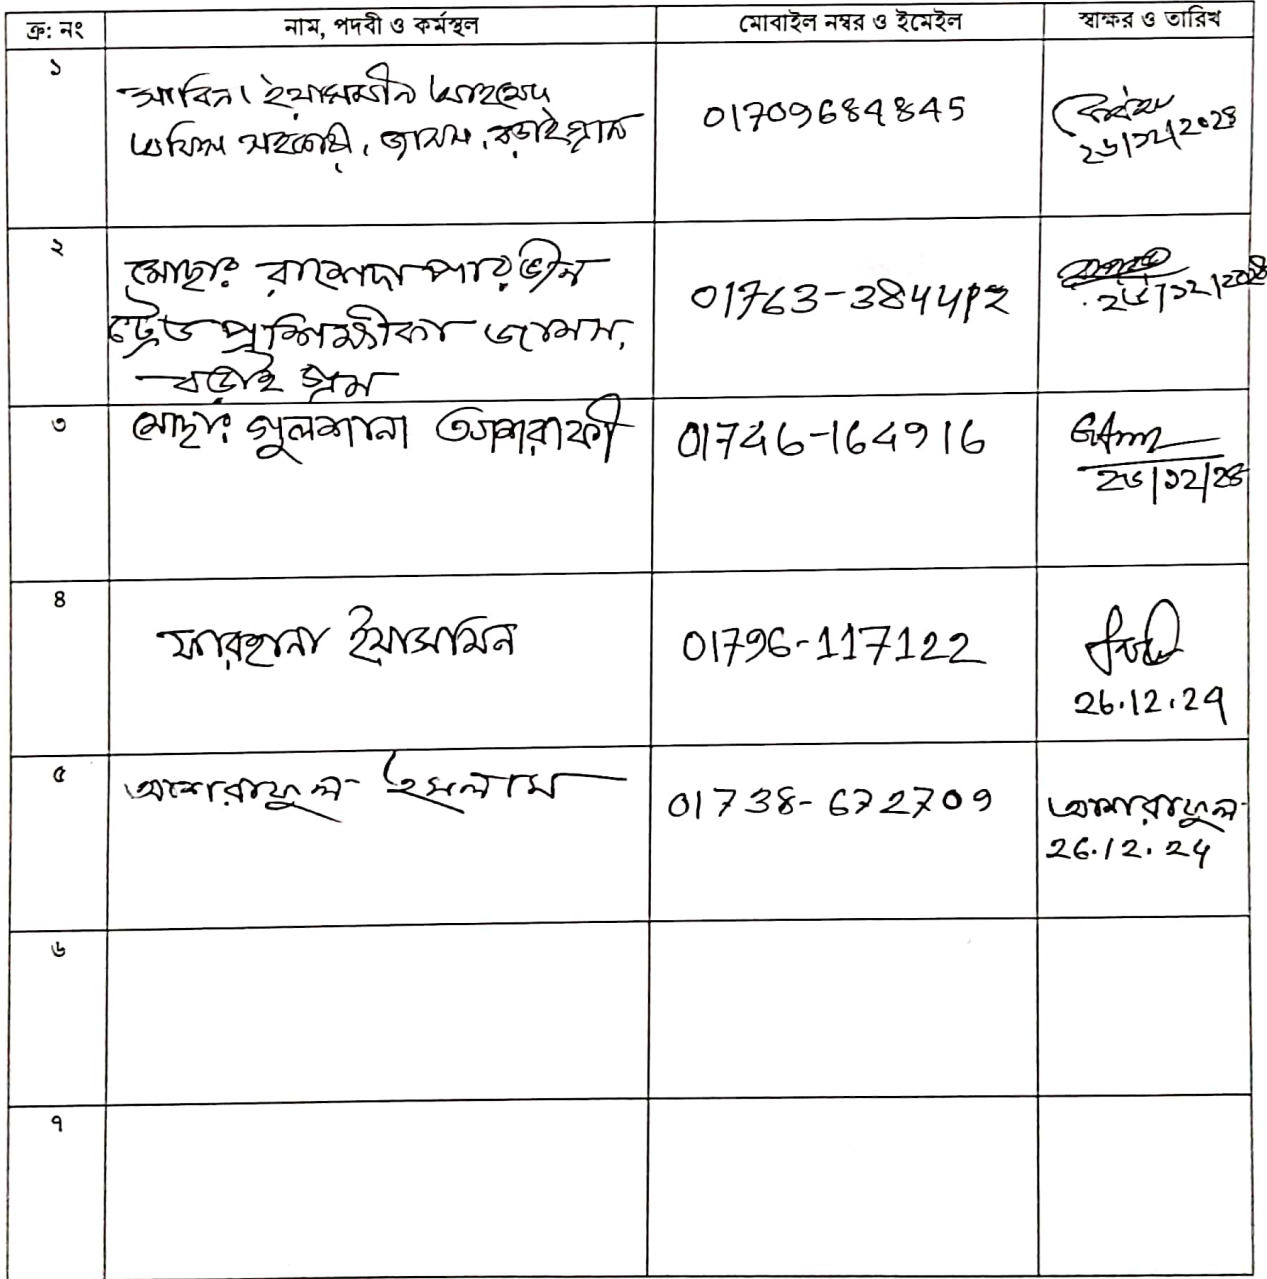 ক্র: নং নাম, পদবী ও কর্মস্থল মোবাইল নম্বর ও ইমেইল স্বাক্ষর ও তারিখ
১
সাবিনা ইয়াসমীন
অফিস সহকারী, জামস, বড়াইগ্রাম
01709684845
২৬/১২/২০২৪
২
মোছাঃ রাশেদা পারভীন
ট্রেড প্রশিক্ষীকা জামস,
বড়াই গ্রাম
/১২/২০২৪
৩
মোছাঃ গুলশানা আশরাফী
01746-164916
২৬/১২/২৪
৪
ফারহানা ইয়াসমিন
01796-117122
26.12.24
৫
আশরাফুল ইসলাম
01738-672709
আশরাফুল
26.12.24
৬
৭